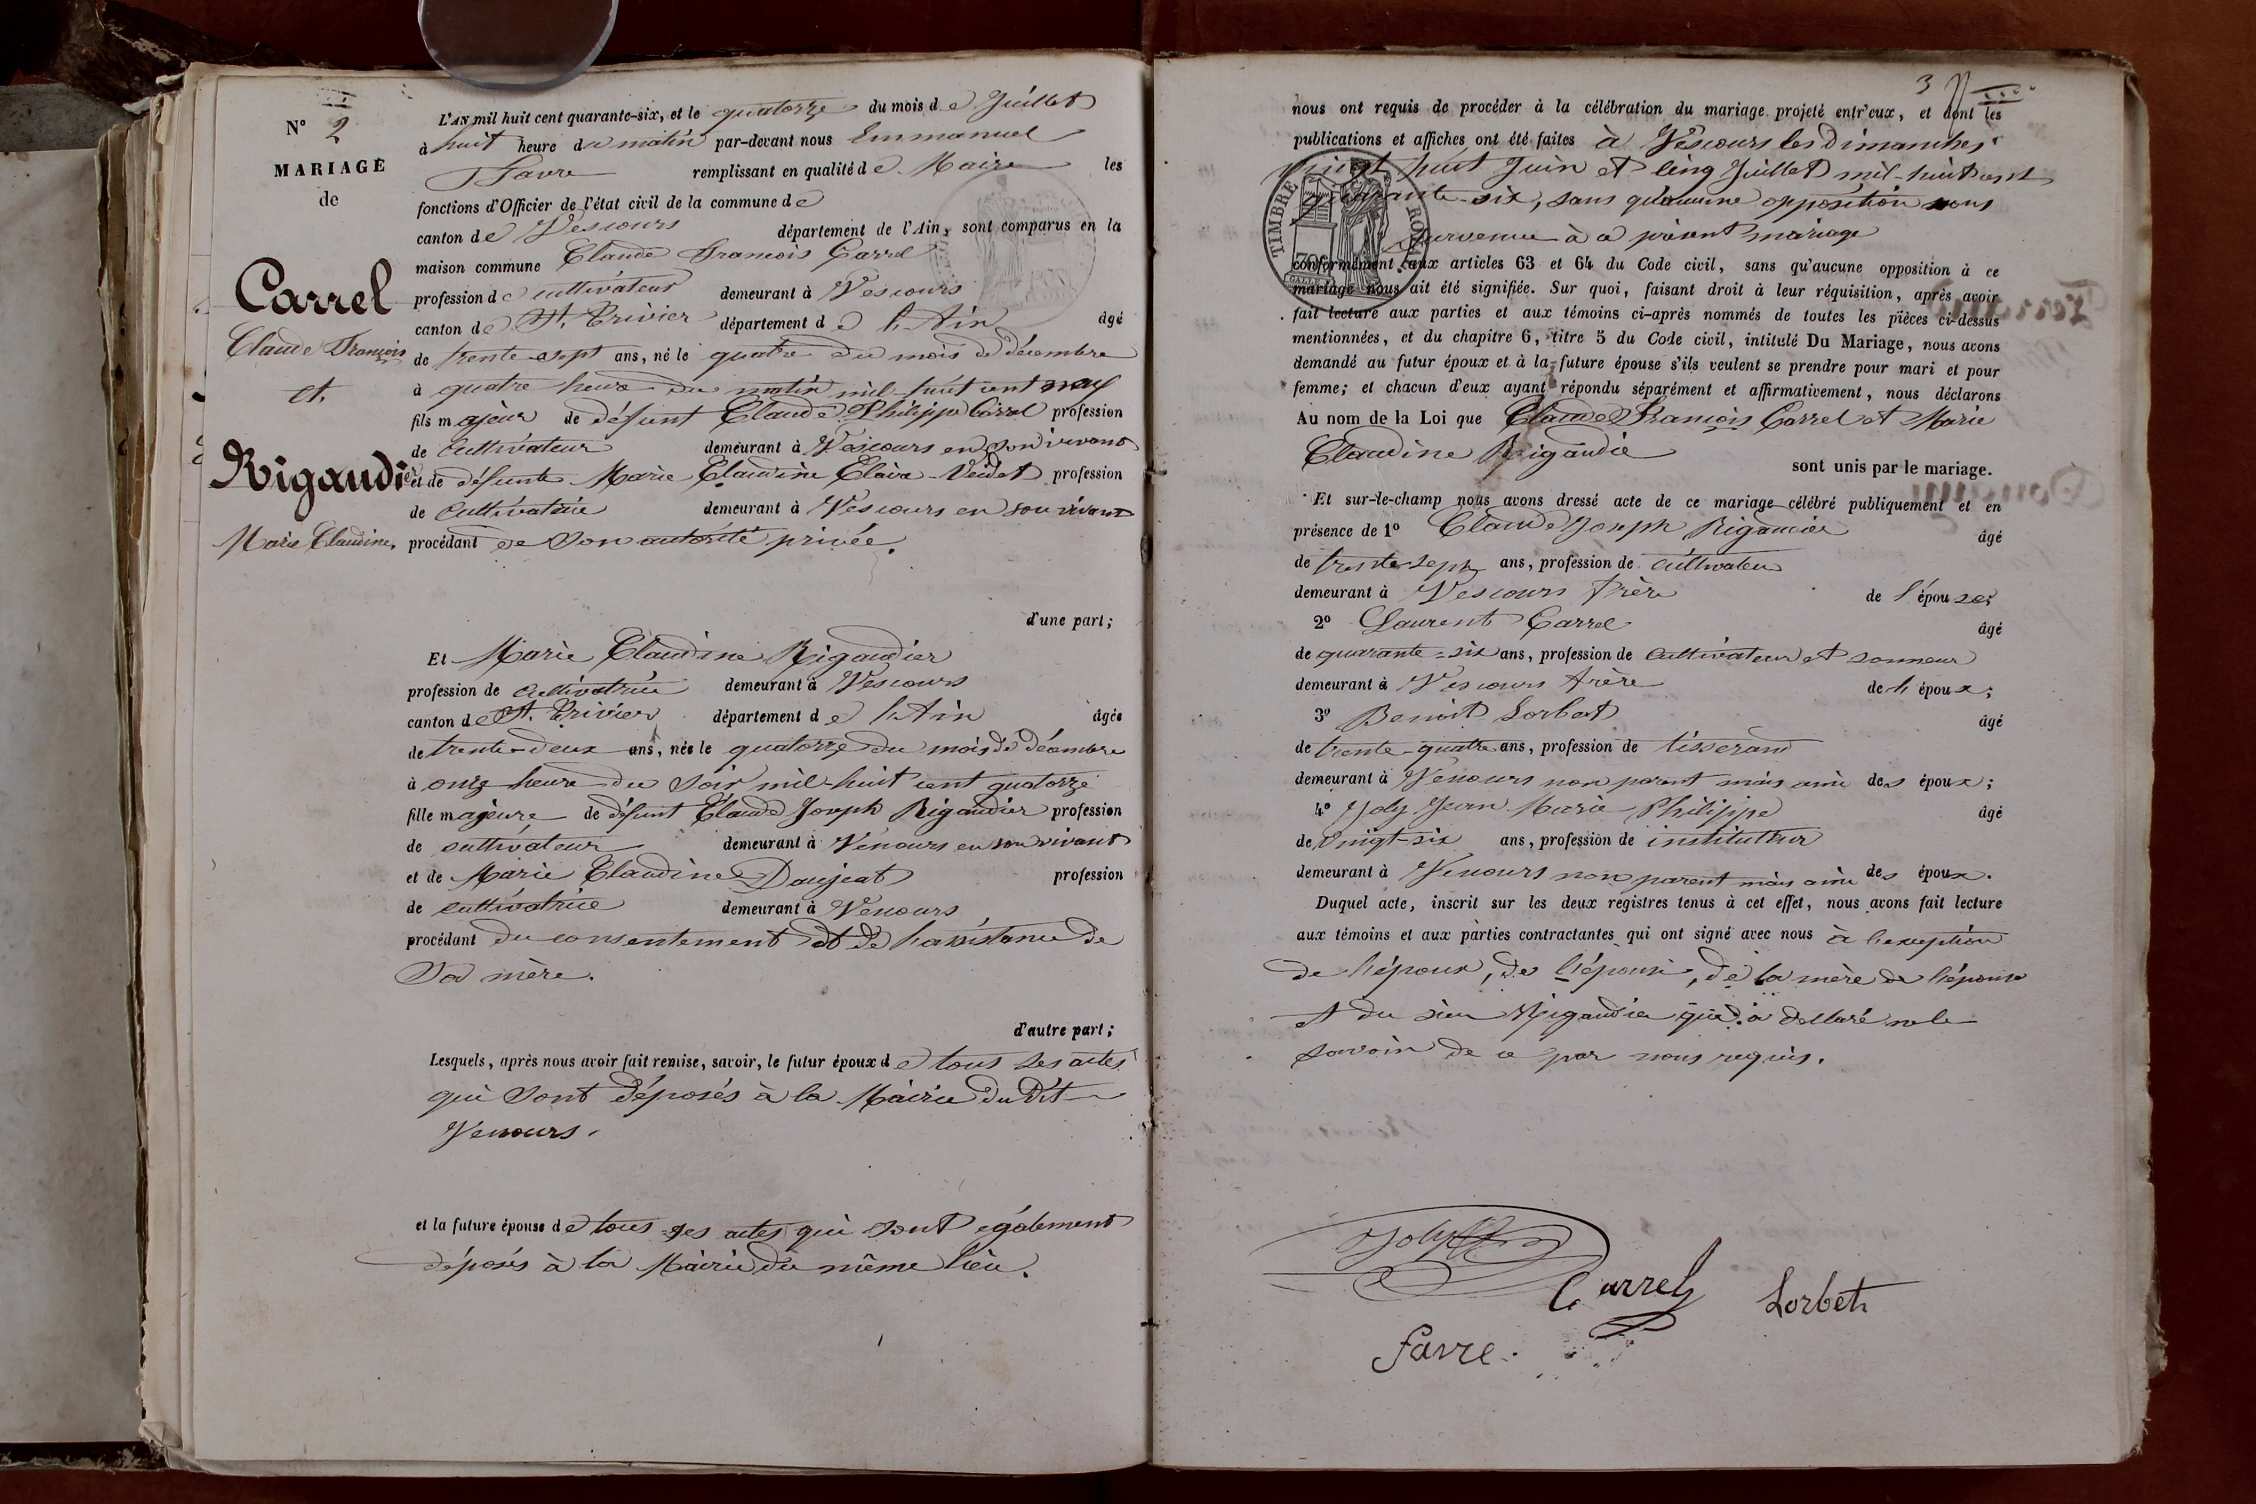 N° 2
MARIAGE
de
Carrel
Claude François
et
Rigaudie
Marie Claudine.
L'AN mil huit cent quarante-six, et le quatorze du mois de Juillet
à huit heure du matin par-devant nous Emmanuel
Favre remplissant en qualité de Maire les
fonctions d'Officier de l'état civil de la commune de
canton de Vescours département de l'Ain, sont comparus en la
maison commune Claude François Carrel
profession de cultivateur demeurant à Vescours
canton de St. Trivier département de l'Ain âgé
de trente-sept ans, né le quatre du mois de décembre
à quatre heure du matin mil-huit cent neuf
fils majeur de défunt Claude Philippe Carrel profession
de Cultivateur demeurant à Vescours en son vivant
et de défunte Marie Claudine Claire profession
de Cultivatrice demeurant à Vescours en son vivant
procédant de son autorité privée.
d'une part;
Et Marie Claudine Rigaudier
profession de Cultivatrice demeurant à Vescours
canton de St. Trivier département de l'Ain âgée
de trente-deux ans, née le quatorze du mois de décembre
à onze heure du soir mil-huit cent quatorze
fille majeure de défunt Claude Joseph Rigaudier profession
de cultivateur demeurant à Vescours en son vivant
et de Marie Claudine Daujeat profession
de cultivatrice demeurant à Vescours
procédant du consentement et de l'assistance de
Sa mère.
d'autre part;
Lesquels, après nous avoir fait remise, savoir, le futur époux de tous ses actes
qui sont déposés à la Mairie du dit
Vescours.
et la future épouse de tous ses actes qui sont également
déposés à la Mairie du même lieu.
3
nous ont requis de procéder à la célébration du mariage projeté entr'eux, et dont les
publications et affiches ont été faites à Vescours les Dimanches
vingt huit Juin et Cinq Juillet mil-huit cent
quarante-six, sans qu'aucune opposition nous
survenue à ce présent mariage
TIMBRE ROYAL
conformément aux articles 63 et 64 du Code civil, sans qu'aucune opposition à ce
mariage nous ait été signifiée. Sur quoi, faisant droit à leur réquisition, après avoir
fait lecture aux parties et aux témoins ci-après nommés de toutes les pièces ci-dessus
mentionnées, et du chapitre 6, titre 5 du Code civil, intitulé Du Mariage, nous avons
demandé au futur époux et à la future épouse s'ils veulent se prendre pour mari et pour
femme; et chacun d'eux ayant répondu séparément et affirmativement, nous déclarons
Au nom de la Loi que Claude François Carrel et Marie
Claudine Rigaudié
sont unis par le mariage.
Et sur-le-champ nous avons dressé acte de ce mariage célébré publiquement et en
présence de 1° Claude Joseph Rigaudier âgé
de trente-sept ans, profession de cultivateur
demeurant à Vescours frère de l'épouse;
2° Laurent Carrel âgé
de quarante-six ans, profession de Cultivateur et sonneur
demeurant à Vescours frère de l'époux;
3° Benoit Lorbet âgé
de trente-quatre ans, profession de tisserand
demeurant à Vescours non parent mais ami des époux;
4° Joly Jean Marie Philippe âgé
de vingt-six ans, profession de instituteur
demeurant à Vescours non parent mais ami des époux.
Duquel acte, inscrit sur les deux registres tenus à cet effet, nous avons fait lecture
aux témoins et aux parties contractantes qui ont signé avec nous à l'exception
de l'époux, de l'épouse, de la mère de l'épouse
et du sieur Rigaudier qui a déclaré ne le
savoir de ce par nous requis.
Joly
Carrel
Lorbet
Favre.